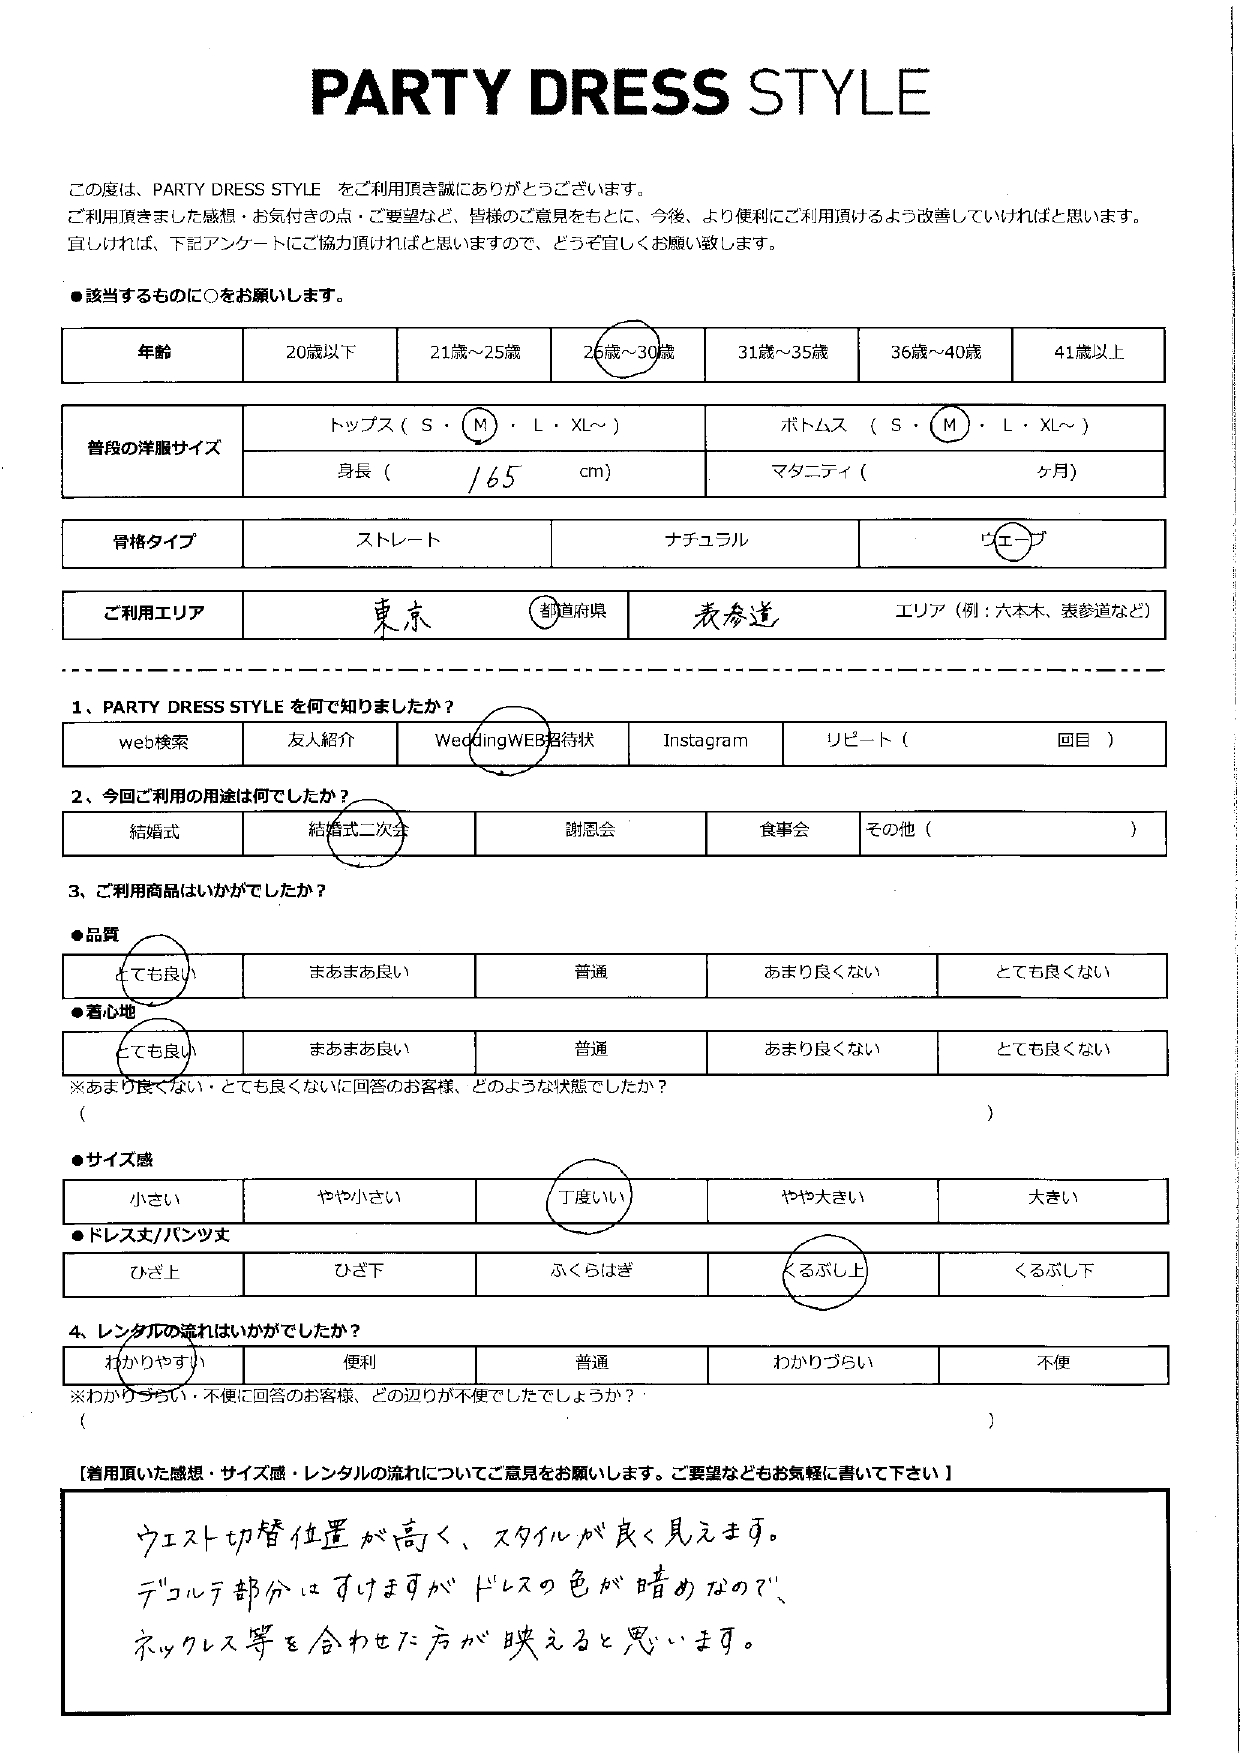 PARTY DRESS STYLE
この度は、PARTY DRESS STYLE をご利用頂き誠にありがとうございます。
ご利用頂きました感想・お気付きの点・ご要望など、皆様のご意見をもとに、今後、より便利にご利用頂けるよう改善していければと思います。
宜しければ、下記アンケートにご協力頂ければと思いますので、どうぞ宜しくお願い致します。
●該当するものに○をお願いします。
年齢 20歳以下 21歳～25歳 26歳～30歳 31歳～35歳 36歳～40歳 41歳以上
普段の洋服サイズ トップス ( S ・ M ・ L ・ XL～ ) ボトムス ( S ・ M ・ L ・ XL～ )
身長 ( 165 cm) マタニティ ( ヶ月)
骨格タイプ ストレート ナチュラル ウェーブ
ご利用エリア 東京 都道府県 表参道 エリア（例：六本木、表参道など）
1、PARTY DRESS STYLE を何で知りましたか？
web検索 友人紹介 WeddingWEB招待状 Instagram リピート ( 回目 )
2、今回ご利用の用途は何でしたか？
結婚式 結婚式二次会 謝恩会 食事会 その他 ( )
3、ご利用商品はいかがでしたか？
●品質
とても良い まあまあ良い 普通 あまり良くない とても良くない
●着心地
とても良い まあまあ良い 普通 あまり良くない とても良くない
※あまり良くない・とても良くないに回答のお客様、どのような状態でしたか？
( )
●サイズ感
小さい やや小さい 丁度いい やや大きい 大きい
●ドレス丈/パンツ丈
ひざ上 ひざ下 ふくらはぎ くるぶし上 くるぶし下
4、レンタルの流れはいかがでしたか？
わかりやすい 便利 普通 わかりづらい 不便
※わかりづらい・不便に回答のお客様、どの辺りが不便でしたでしょうか？
( )
【着用頂いた感想・サイズ感・レンタルの流れについてご意見をお願いします。ご要望などもお気軽に書いて下さい 】
ウエスト切替位置が高く、スタイルが良く見えます。
デコルテ部分はすけますがドレスの色が暗めなので、
ネックレス等を合わせた方が映えると思います。